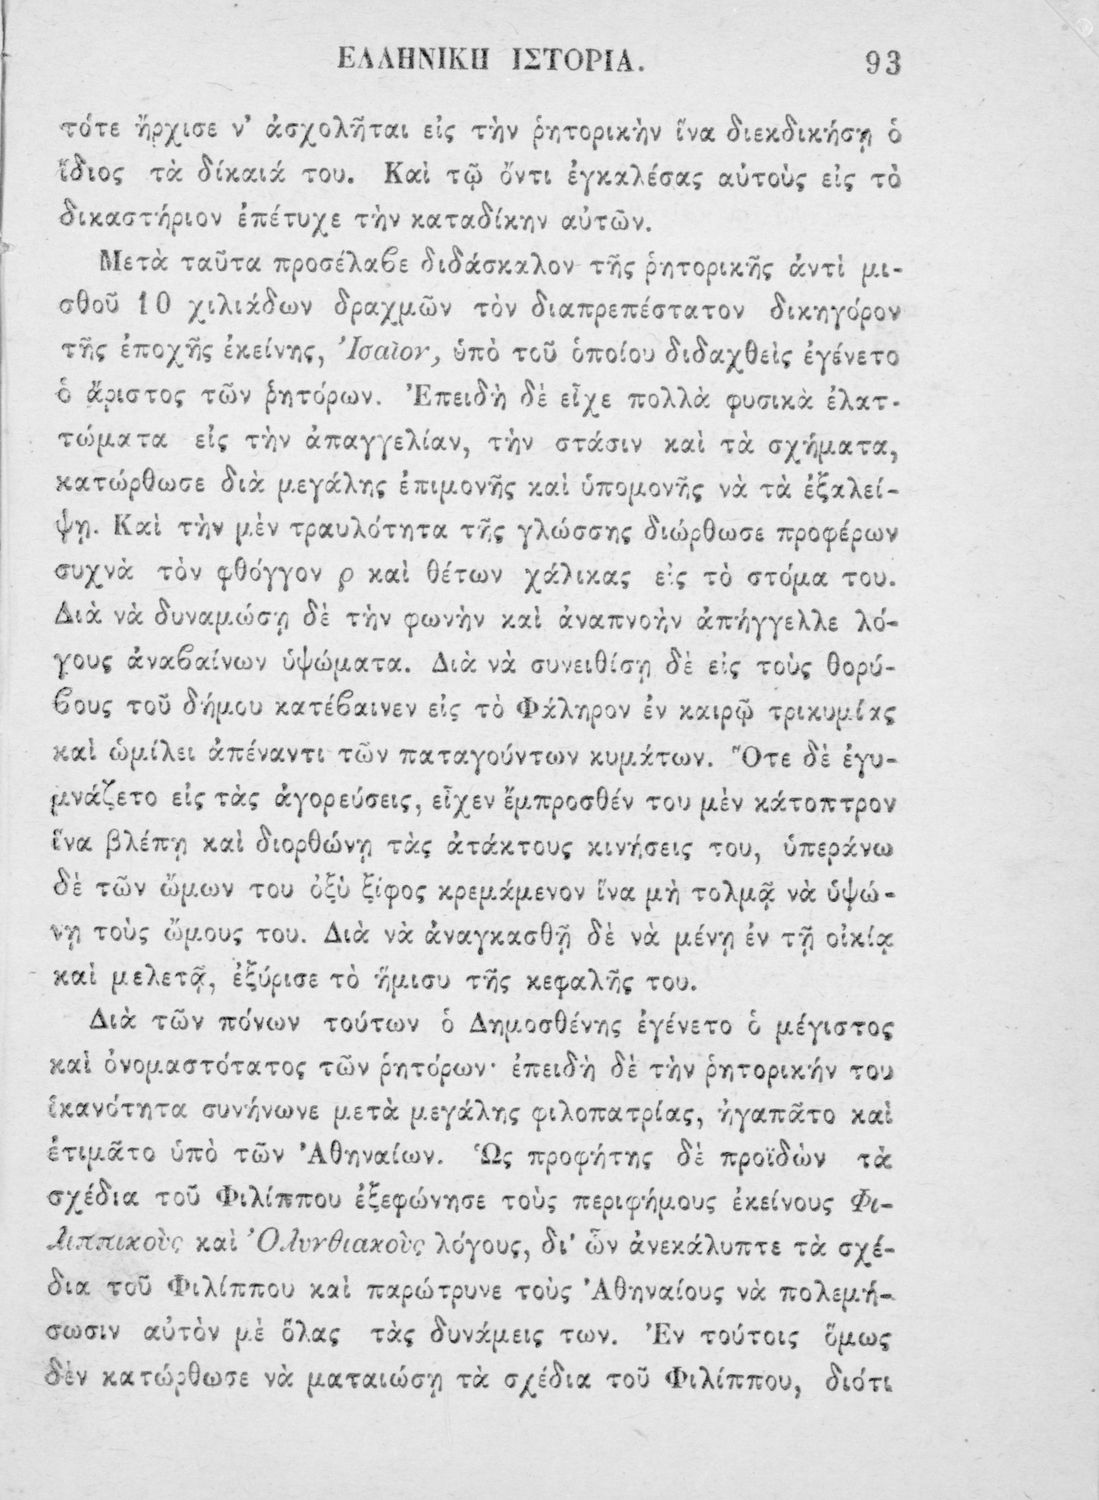 ΕΛΛΗΝΙΚΗ ΙΣΤΟΡΙΑ. 93
τότε ἤρχισε ν' ἀσχολῆται εἰς τὴν ῥητορικὴν ἵνα διεκδικήσῃ ὁ
ἴδιος τὰ δίκαιά του. Καὶ τῷ ὄντι ἐγκαλέσας αὐτοὺς εἰς τὸ
δικαστήριον ἐπέτυχε τὴν καταδίκην αὐτῶν.
Μετὰ ταῦτα προσέλαϐε διδάσκαλον τῆς ῥητορικῆς ἀντὶ μι-
σθοῦ 10 χιλιάδων δραχμῶν τὸν διαπρεπέστατον δικηγόρον
τῆς ἐποχῆς ἐκείνης, Ἰσαῖον, ὑπὸ τοῦ ὁποίου διδαχθεὶς ἐγένετο
ὁ ἄριστος τῶν ῥητόρων. Ἐπειδὴ δὲ εἶχε πολλὰ φυσικὰ ἐλατ-
τώματα εἰς τὴν ἀπαγγελίαν, τὴν στάσιν καὶ τὰ σχήματα,
κατώρθωσε διὰ μεγάλης ἐπιμονῆς καὶ ὑπομονῆς νὰ τὰ ἐξαλεί-
ψῃ. Καὶ τὴν μὲν τραυλότητα τῆς γλώσσης διώρθωσε προφέρων
συχνὰ τὸν φθόγγον ρ καὶ θέτων χάλικας εἰς τὸ στόμα του.
Διὰ νὰ δυναμώσῃ δὲ τὴν φωνὴν καὶ ἀναπνοὴν ἀπήγγελλε λό-
γους ἀναϐαίνων ὑψώματα. Διὰ νὰ συνειθίσῃ δὲ εἰς τοὺς θορύ-
ϐους τοῦ δήμου κατέϐαινεν εἰς τὸ Φάληρον ἐν καιρῷ τρικυμίας
καὶ ὡμίλει ἀπέναντι τῶν παταγούντων κυμάτων. Ὅτε δὲ ἐγυ-
μνάζετο εἰς τὰς ἀγορεύσεις, εἶχεν ἔμπροσθέν του μὲν κάτοπτρον
ἵνα βλέπῃ καὶ διορθώνῃ τὰς ἀτάκτους κινήσεις του, ὑπεράνω
δὲ τῶν ὤμων του ὀξὺ ξίφος κρεμάμενον ἵνα μὴ τολμᾷ νὰ ὑψώ-
νῃ τοὺς ὤμους του. Διὰ νὰ ἀναγκασθῇ δὲ νὰ μένῃ ἐν τῇ οἰκίᾳ
καὶ μελετᾷ, ἐξύρισε τὸ ἥμισυ τῆς κεφαλῆς του.
Διὰ τῶν πόνων τούτων ὁ Δημοσθένης ἐγένετο ὁ μέγιστος
καὶ ὀνομαστότατος τῶν ῥητόρων· ἐπειδὴ δὲ τὴν ῥητορικήν του
ἱκανότητα συνήνωνε μετὰ μεγάλης φιλοπατρίας, ἠγαπᾶτο καὶ
ἐτιμᾶτο ὑπὸ τῶν Ἀθηναίων. Ὡς προφήτης δὲ προϊδὼν τὰ
σχέδια τοῦ Φιλίππου ἐξεφώνησε τοὺς περιφήμους ἐκείνους Φι-
λιππικοὺς καὶ Ὀλυνθιακοὺς λόγους, δι' ὧν ἀνεκάλυπτε τὰ σχέ-
δια τοῦ Φιλίππου καὶ παρώτρυνε τοὺς Ἀθηναίους νὰ πολεμή-
σωσιν αὐτὸν μὲ ὅλας τὰς δυνάμεις των. Ἐν τούτοις ὅμως
δὲν κατώρθωσε νὰ ματαιώσῃ τὰ σχέδια τοῦ Φιλίππου, διότι